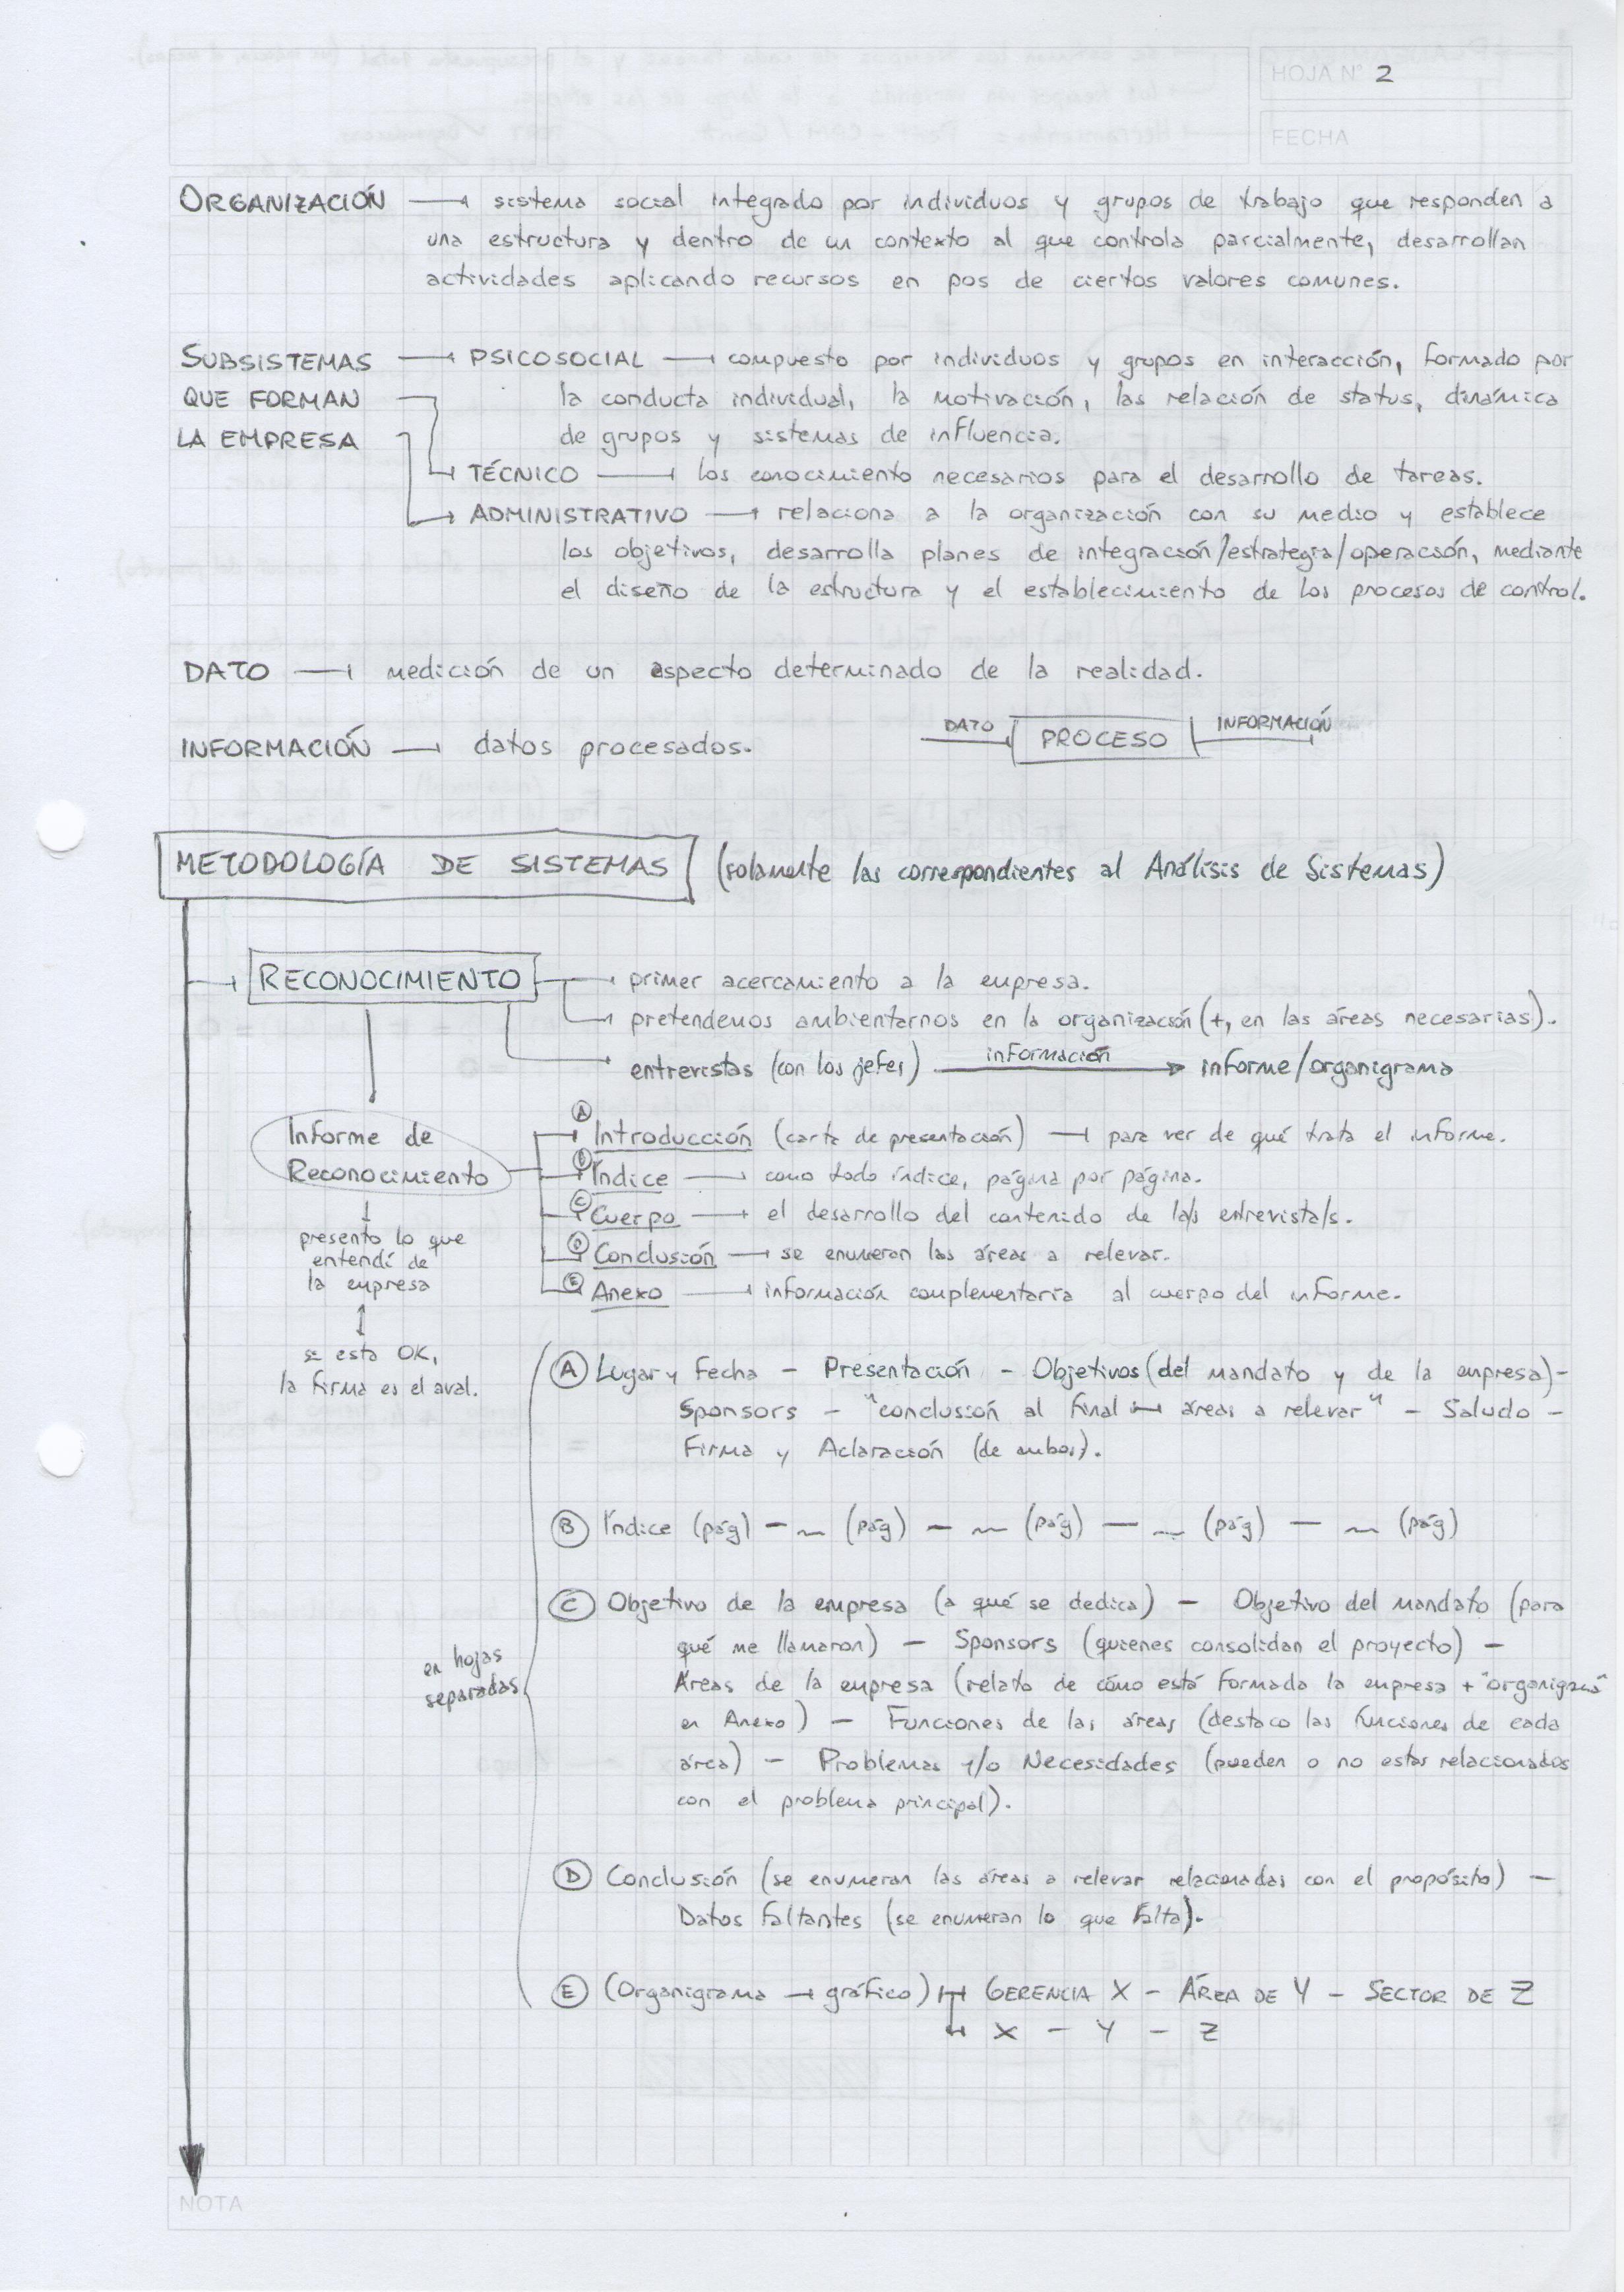 HOJA N° 2
FECHA
ORGANIZACIÓN → sistema social integrado por individuos y grupos de trabajo que responden a
una estructura y dentro de un contexto al que controla parcialmente, desarrollan
actividades aplicando recursos en pos de ciertos valores comunes.
SUBSISTEMAS → PSICOSOCIAL → compuesto por individuos y grupos en interacción, formado por
QUE FORMAN la conducta individual, la motivación, las relación de status, dinámica
LA EMPRESA de grupos y sistemas de influencia.
→ TÉCNICO → los conocimiento necesarios para el desarrollo de tareas.
→ ADMINISTRATIVO → relaciona a la organización con su medio y establece
los objetivos, desarrolla planes de integración/estrategia/operación, mediante
el diseño de la estructura y el establecimiento de los procesos de control.
DATO → medición de un aspecto determinado de la realidad.
INFORMACIÓN → datos procesados.
DATO PROCESO INFORMACIÓN
METODOLOGÍA DE SISTEMAS (solamente las correspondientes al Análisis de Sistemas)
RECONOCIMIENTO → primer acercamiento a la empresa.
→ pretendemos ambientarnos en la organización (+, en las áreas necesarias).
→ entrevistas (con los jefes) información → informe/organigrama
Informe de
Reconocimiento
↓
presento lo que
entendí de
la empresa
↑
si esta OK,
la firma es el aval.
Ⓐ Introducción (carta de presentación) → para ver de qué trata el informe.
Ⓑ Índice → como todo índice, página por página.
Ⓒ Cuerpo → el desarrollo del contenido de la/s entrevista/s.
Ⓓ Conclusión → se enumeran las áreas a relevar.
Ⓔ Anexo → información complementaria al cuerpo del informe.
en hojas
separadas
Ⓐ Lugar y Fecha - Presentación - Objetivos (del mandato y de la empresa) -
Sponsors - "conclusión al final → áreas a relevar" - Saludo -
Firma y Aclaración (de ambos).
Ⓑ Índice (pág) - ~ (pág) - ~ (pág) - ~ (pág) - ~ (pág)
Ⓒ Objetivo de la empresa (a qué se dedica) - Objetivo del mandato (para
qué me llamaron) - Sponsors (quienes consolidan el proyecto) -
Áreas de la empresa (relato de cómo está formada la empresa + "organigrama"
en Anexo) - Funciones de las áreas (destaco las funciones de cada
área) - Problemas y/o Necesidades (pueden o no estar relacionados
con el problema principal).
Ⓓ Conclusión (se enumeran las áreas a relevar relacionadas con el propósito) -
Datos faltantes (se enumeran lo que falta).
Ⓔ (Organigrama → gráfico) → GERENCIA X - ÁREA DE Y - SECTOR DE Z
→ X - Y - Z
NOTA